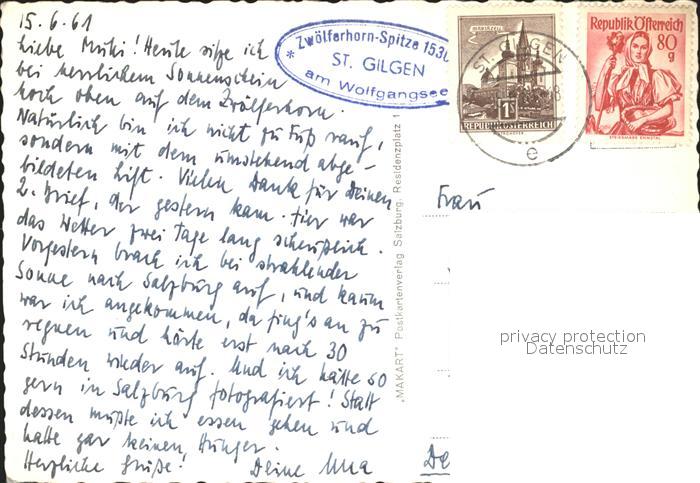 15.6.61
Liebe Muki! Heute sitze ich
bei herrlichem Sonnenschein
hoch oben auf dem Zwölferhorn.
Natürlich bin ich nicht zu Fuß rauf,
sondern mit dem umstehend abge-
bildeten Lift. Vielen Dank für Deinen
2. Brief, der gestern kam. Hier war
das Wetter zwei Tage lang scheußlich.
Vorgestern brach ich bei strahlender
Sonne nach Salzburg auf, und kaum
war ich angekommen, da fing's an zu
regnen und hörte erst nach 30
Stunden wieder auf. Und ich hätte so
gern in Salzburg fotografiert! Statt
dessen mußte ich essen gehen und
hatte gar keinen Hunger.
Herzliche Grüße! Deine Uta
* Zwölferhorn-Spitze 1530
ST. GILGEN
am Wolfgangsee
MARIAZELL
1
REPUBLIK ÖSTERREICH
ST. GILGEN
e
Republik Österreich
80
g
STEIERMARK ENNSTAL
"MAKART" Postkartenverlag Salzburg, Residenzplatz 1
Frau
De
privacy protection
Datenschutz